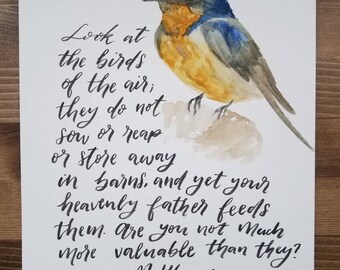 Look at
the birds
of the air;
they do not
sow or reap
or store away
in barns, and yet your
heavenly father feeds
them. Are you not much
more valuable than they?